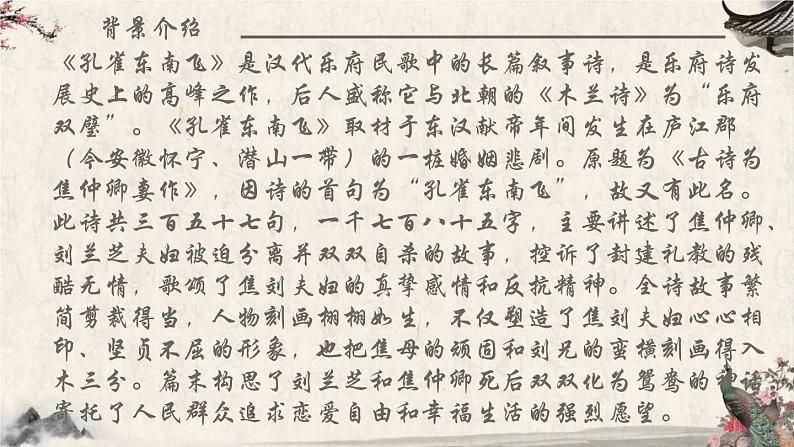 背景介绍
《孔雀东南飞》是汉代乐府民歌中的长篇叙事诗，是乐府诗发
展史上的高峰之作，后人盛称它与北朝的《木兰诗》为“乐府
双璧”。《孔雀东南飞》取材于东汉献帝年间发生在庐江郡
（今安徽怀宁、潜山一带）的一桩婚姻悲剧。原题为《古诗为
焦仲卿妻作》，因诗的首句为“孔雀东南飞”，故又有此名。
此诗共三百五十七句，一千七百八十五字，主要讲述了焦仲卿、
刘兰芝夫妇被迫分离并双双自杀的故事，控诉了封建礼教的残
酷无情，歌颂了焦刘夫妇的真挚感情和反抗精神。全诗故事繁
简剪裁得当，人物刻画栩栩如生，不仅塑造了焦刘夫妇心心相
印、坚贞不屈的形象，也把焦母的顽固和刘兄的蛮横刻画得入
木三分。篇末构思了刘兰芝和焦仲卿死后双双化为鸳鸯的神话，
寄托了人民群众追求恋爱自由和幸福生活的强烈愿望。